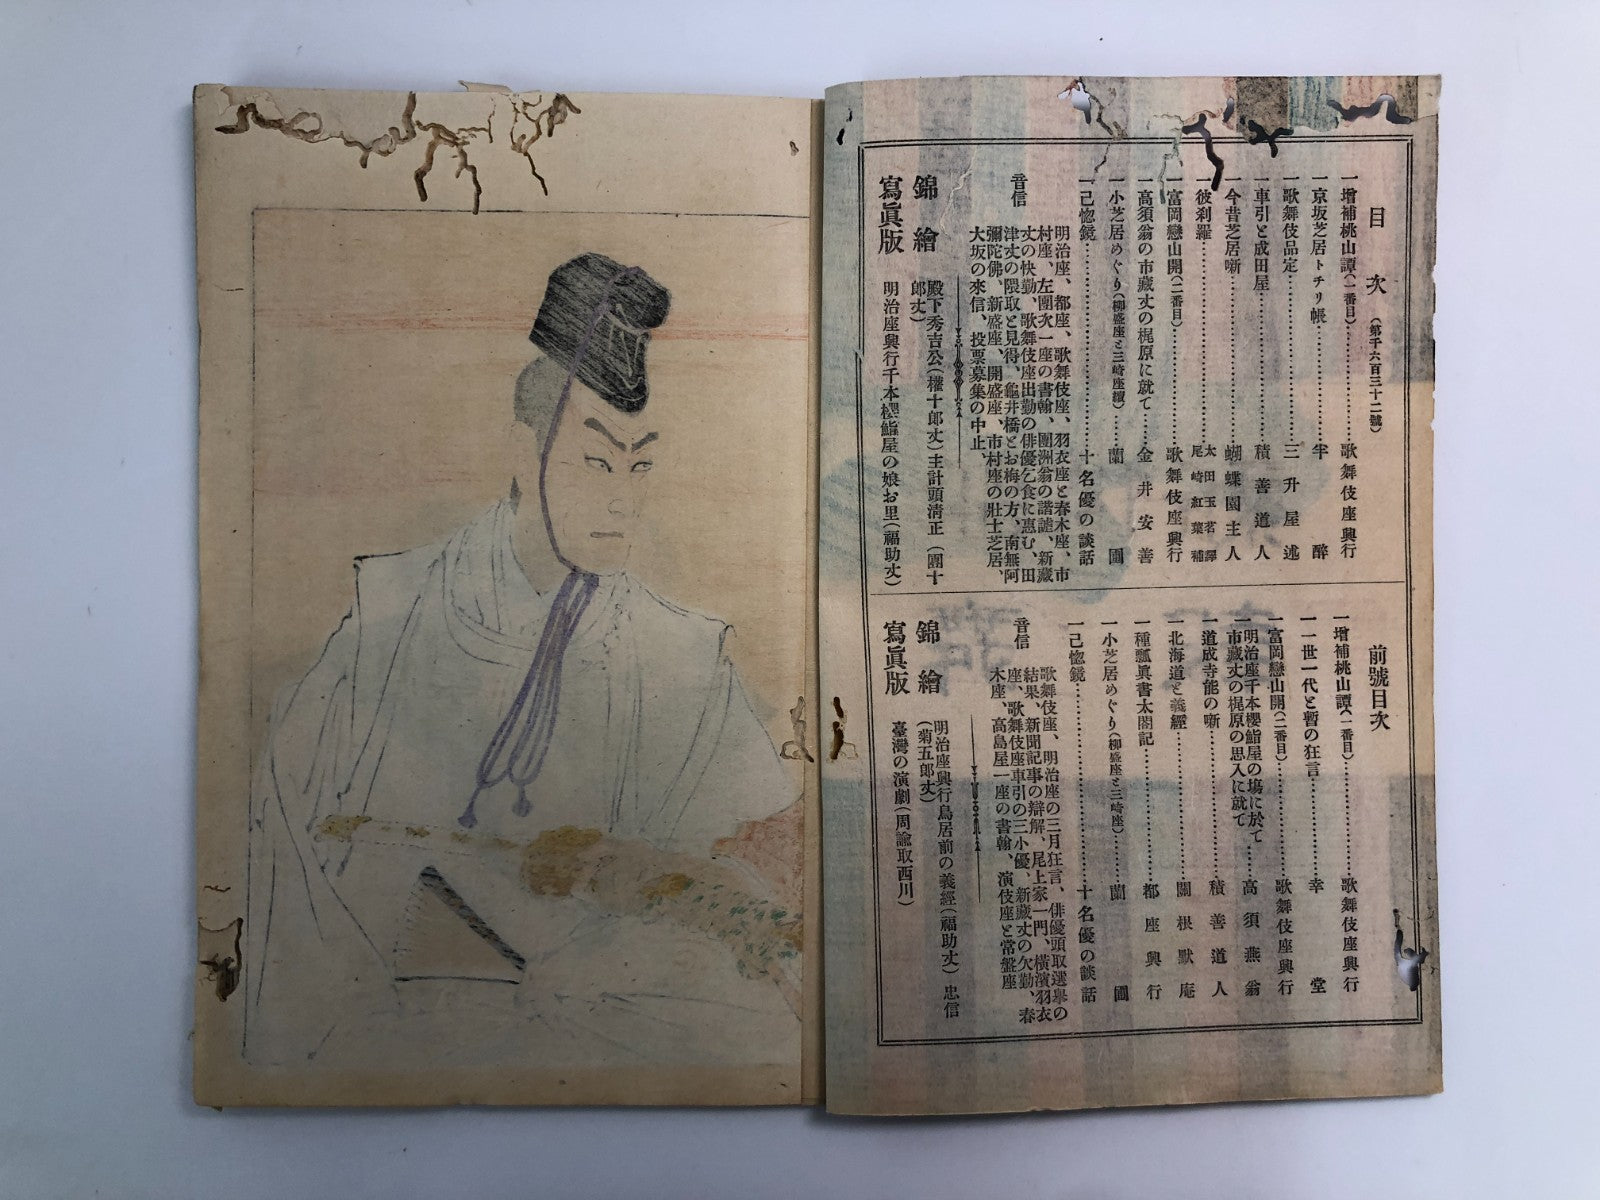 目次(第千六百三十二號)
一增補桃山譚(一番目)……歌舞伎座興行
一京坂芝居トチリ帳……半醉
一歌舞伎品定……三升屋述
一車引と成田屋……積善道人
一今昔芝居噺……蝴蝶園主人
一彼刹羅……太田玉茗譯 尾崎紅葉補
一富岡戀山開(二番目)……歌舞伎座興行
一高須翁の市藏丈の梶原に就て……金井安善
一小芝居めぐり(柳盛座と三崎座續)……蘭圃
一己惚鏡……十名優の談話
音信
明治座、都座、歌舞伎座、羽衣座と春木座、市
村座、左團次一座の書翰、團洲翁の諧謔、新藏
丈の快勤、歌舞伎座出勤の俳優乞食に惠む、田
津丈の隈取と見得、龜井橋とお梅の方、南無阿
彌陀佛、新盛座、開盛座、市村座の壯士芝居、
大坂の來信、投票募集の中止、
錦繪
殿下秀吉公(權十郎丈)主計頭淸正(團十
郎丈)
寫眞版
明治座興行千本櫻鮨屋の娘お里(福助丈)
前號目次
一增補桃山譚(一番目)……歌舞伎座興行
一一世一代と暫の狂言……幸堂
一富岡戀山開(二番目)……歌舞伎座興行
一明治座千本櫻鮨屋の塲に於て
市藏丈の梶原の思入に就て……高須燕翁
一道成寺能の噺……積善道人
一北海道と義經……關根默庵
一種瓢眞書太閤記……都座興行
一小芝居めぐり(柳盛座と三崎座)……蘭圃
一己惚鏡……十名優の談話
音信
歌舞伎座、明治座の三月狂言、俳優頭取選擧の
結果、新聞記事の辯解、尾上家一門、橫濱羽衣
座、歌舞伎座車引の三小優、新藏丈の欠勤、春
木座、高島屋一座の書翰、演伎座と常盤座
錦繪
明治座興行鳥居前の義經(福助丈)忠信
(菊五郎丈)
寫眞版
臺灣の演劇(周諭取西川)